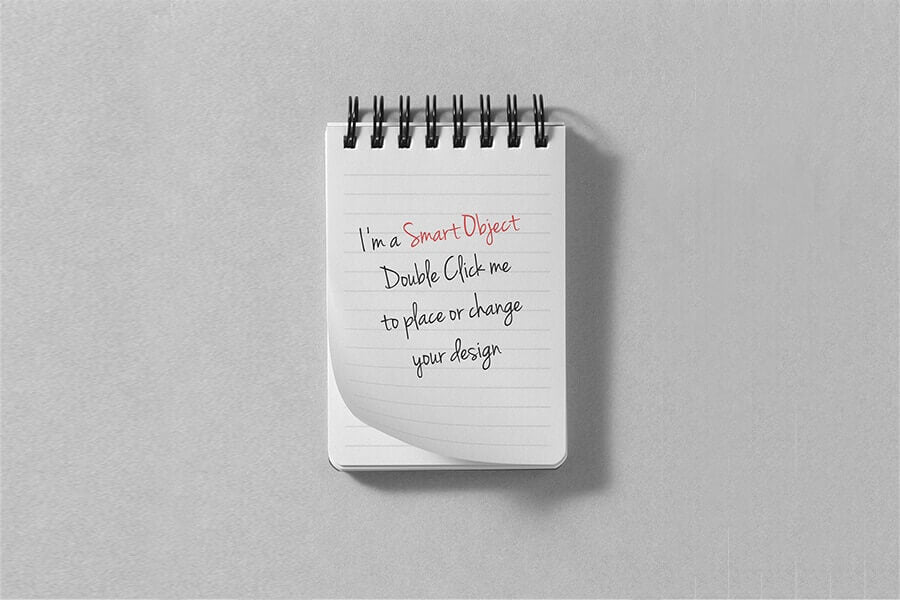 I'm a Smart Object
Double Click me
to place or change
your design